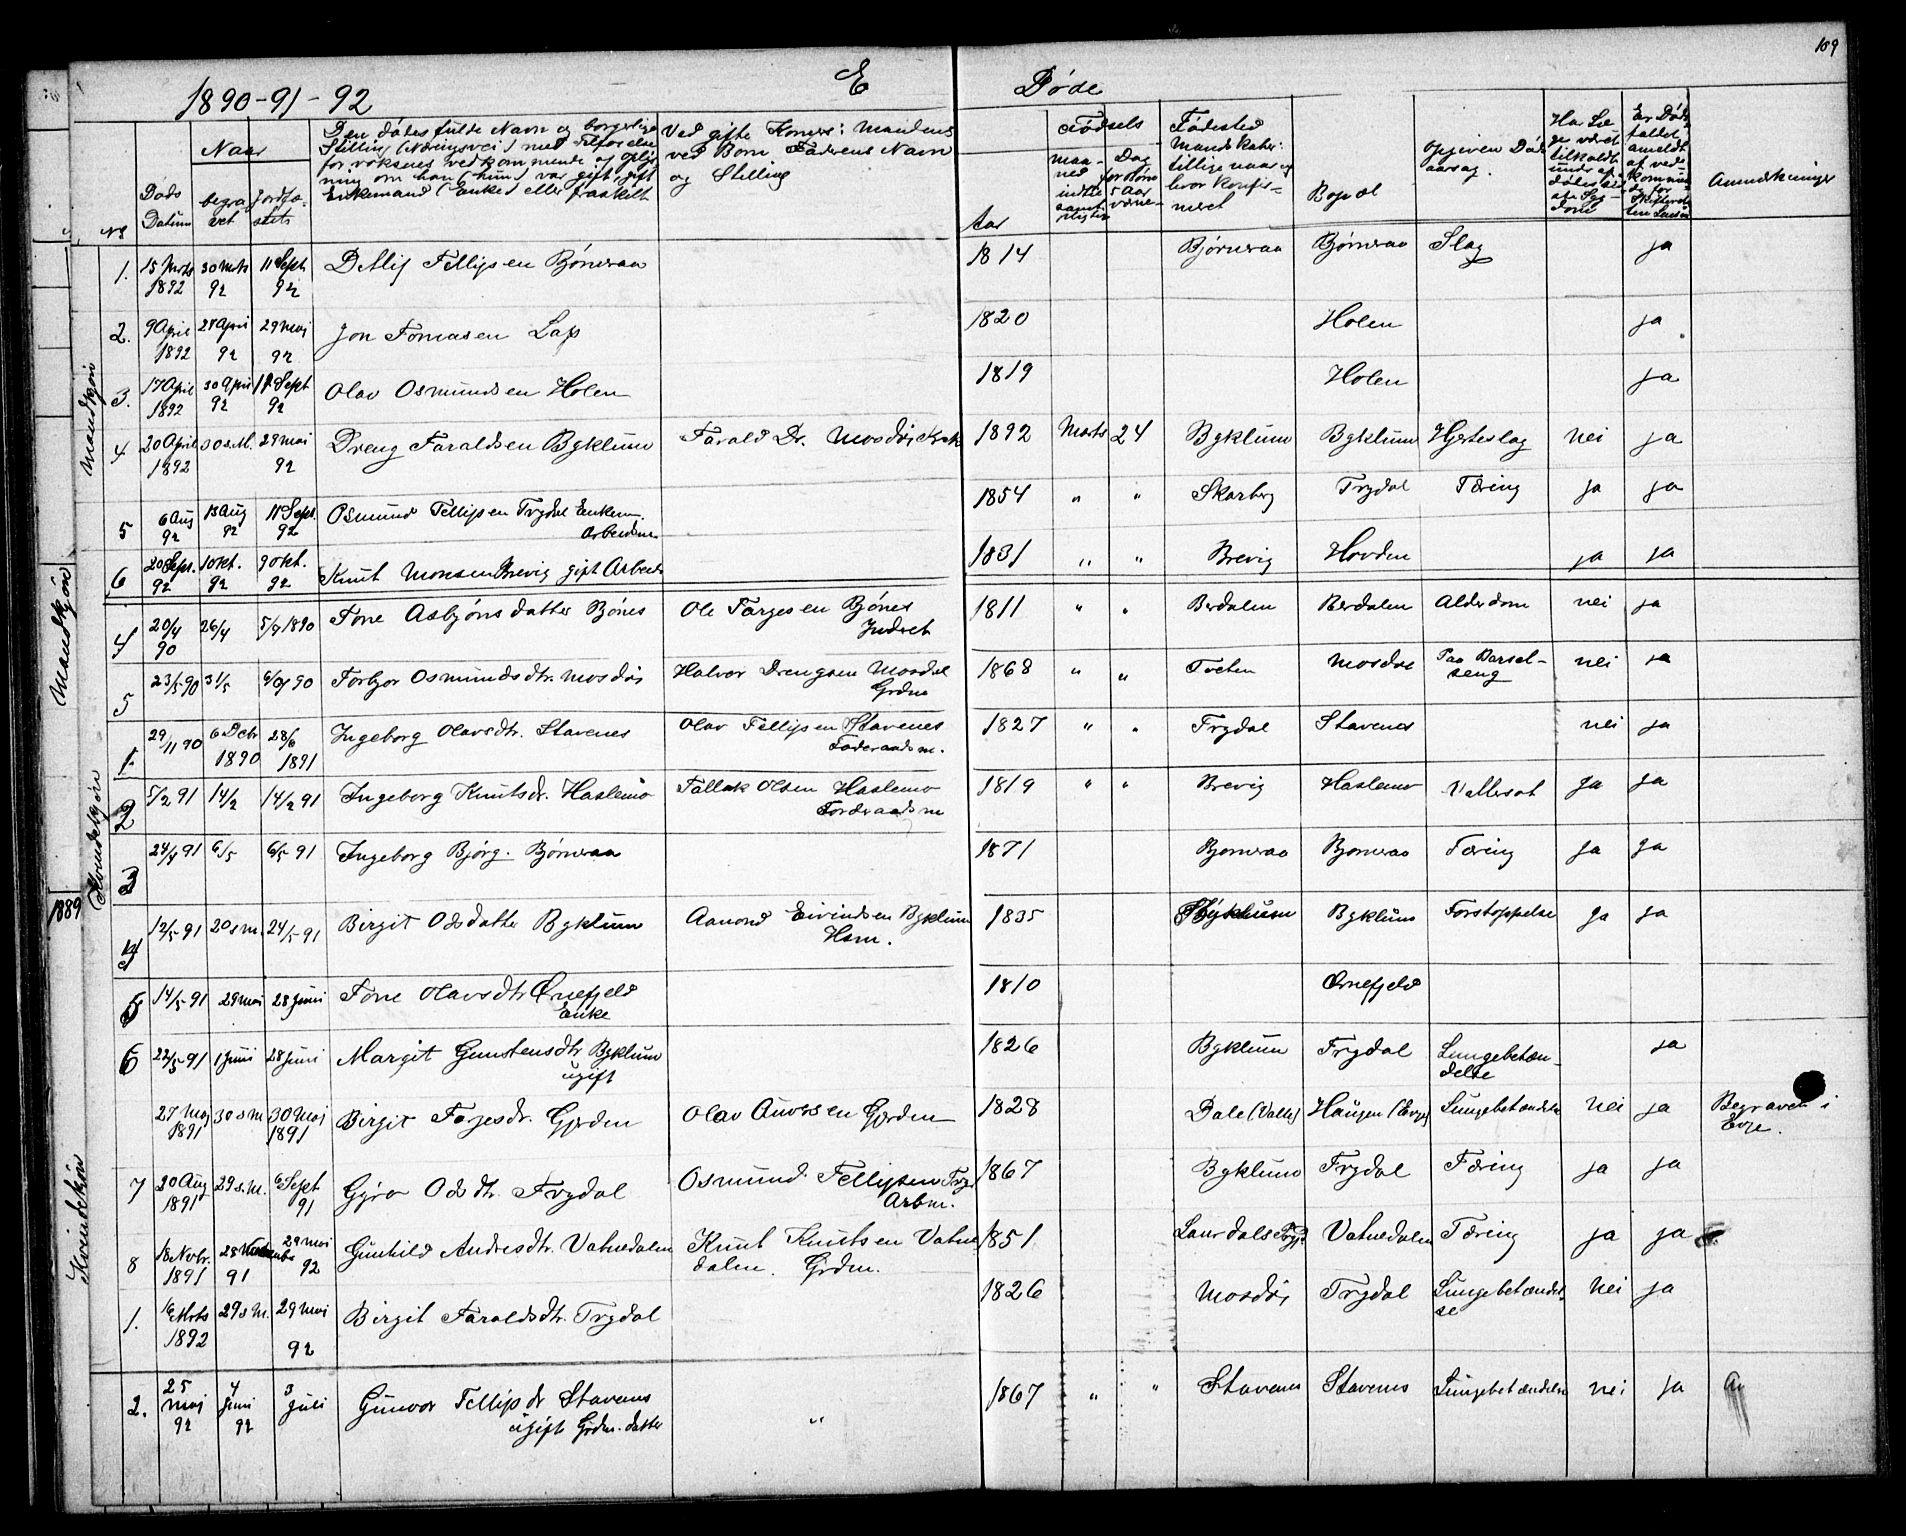 109
1890-91-92
E
Døde
Naar
Den dødes fulde Navn og borgerlige
Stilling (Næringsvei) med Tilføielse
for voksnes vedkommende af oplys
ning om han (hun) var gift, ugift
Enkemand (Enke) eller fraskilt
Ved gifte Koner: Mandens
ved Børn Faderens Navn
og Stilling
Nr
Døds
Datum
begra
vet
Jordfæ-
stet
Aar
Fødsels
maa-
ned
Dag
Fødested
Bopæl
opgiven Døds
aarsag.
Anmærkninger
Mandkjøn
1. 15 Mrts 1892 30 Mrts 92 11 Sept 92 Detlif Fellipsen Bjørneraa 1814 Bjørneraa Bjørneraa Slag ja
2. 9 April 1892 28 April 92 29 Mai 92 Jon Tomasen Lap 1820 Holen ja
3. 17 April 1892 30 April 92 11 Sept 92 Olav Osmundsen Holen 1819 Holen ja
4 20 April 1892 30 s.M. 29 mai 92 Dreng Taraldsen Bgklum Tarald Dr. Mosdøi 1892 Marts 24 Bgklum Bgklum Hjerteslag nei ja
5 6 Aug 92 13 Aug 92 11 Sept. 92 Osmund Fellipsen Trydal Enkem. Arbeidsm. 1854 " " Skarberg Trydal Tæring ja ja
6 20 Sept. 92 1 Okt. 92 9 Okt. 92 Knut Monsen Brevig gift Arbeids 1831 " " Brevig Hovden ja ja
Mandkjøn
Kvindekjøn
4 20/4 90 26/4 5/9 1890 Tone Asbjønsdatter Bjønes Ole Targesen Bjønes Inderst 1811 " " Berdalen Berdalen Alderdom nei ja
5 23/5 90 31/5 90 Torbjor Osmundsdtr. Mosdøi Halvor Drengsen Mosdøl Grdm 1868 " " Tveten Mosdøl Paa Barsel-
seng nei ja
1 29/11 90 6 Dcbr 1890 28/6 1891 Ingeborg Olavsdtr. Stavenes Olav Fellipsen Stavenes Føderaadsm. 1827 " " Trydal Stavenes nei ja
2 5/2 91 14/2 14/2 91 Ingeborg Knutsdr. Haslemo Tallak Olsen Haslemo Førderaadsm 1819 " " Brevig Haslemo Vattersot Ja Ja
3 24/4 91 6/5 6/5 91 Ingeborg Bjørg. Bjørneraa 1871 Bjorneraa Bjorneraa Tæring Ja Ja
1889
4 12/5 91 20 s m. 24/5 91 Birgit Odsdatter Bgklum Aanond Eivindsen Bgklum Hsm. 1835 Bgklum Bgklum Forstoppelse Ja Ja
5 14/5 91 29 mai 28 Juni Tone Olavsdtr Ørnefjeld Enke 1810 Ørnefjeld
6 22/5 91 1 Juni 28 Juni Margit Gunstensdtr Bgklum ugift 1826 Bgklum Trydal Lungebetæn-
delse ja
27 Maj 1891 30 s M 30 Maj 1891 Birgit Tarjesdr. Gjerden Olav Auversen Gjerden 1828 Dale (Valle) Haugen (Evje) Lungebetændelse Nei ja Begraven i
Evje.
Kvindekøn
7 20 Aug 1891 29 s. M. 6 Sept 91 Gyro Odsdtr. Trydal Osmund Fellipsen Tryd Arbm. 1867 Bgklum Trydal Tæring ja ja
8 18 Novbr. 1891 28 91 29 mai 92 Gunhild Andresdtr. Vatnedalen Knut Knutsen Vatne
dalen. Grdm. 1851 Vatnedalen Tæring ja ja
1. 16 Mrts 1892 29 s M. 29 Mai 92 Birgit Taraldsdtr. Trydal 1826 Mosdøi Trydal Lungebetændel
se Nei ja
2. 25 Maj 92 4 Juni 92 3 Juli Gunvor Fellipsdr Stavenes
ugift Grdm. datter " 1867 " " Stavenes Stavenes Lungebetændelse nei ja